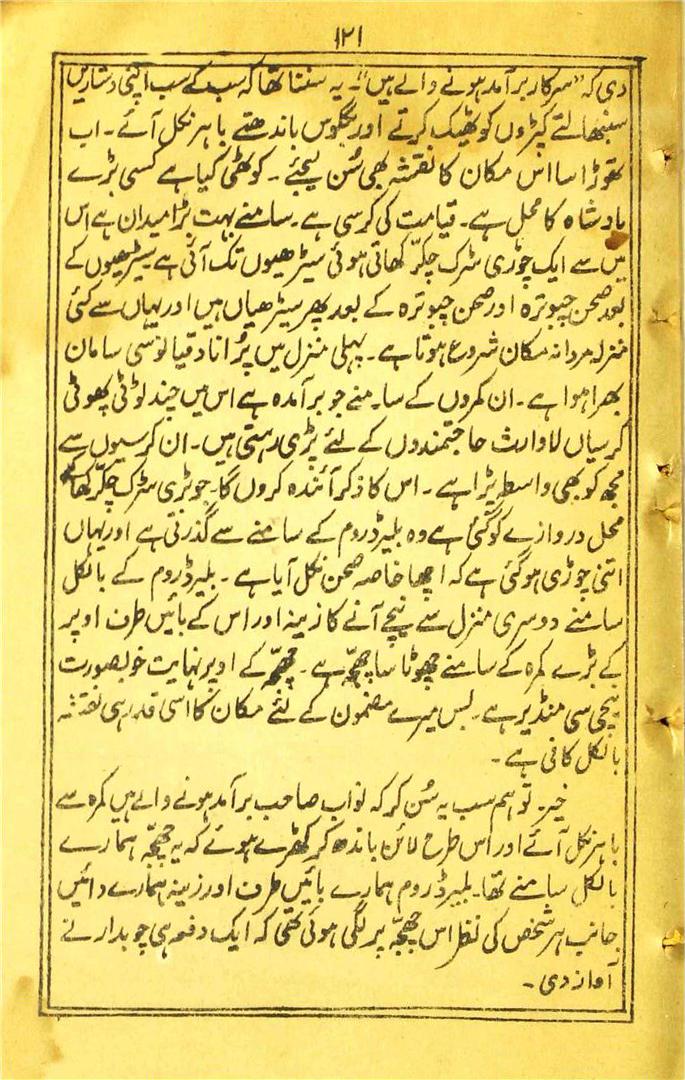 ۱۲۱
دی کہ "سرکار برآمد ہونے والے ہیں"۔ یہ سننا تھا کہ سب کے سب اپنی دستاریں
سنبھالتے کپڑوں کو ٹھیک کرتے اور بگلوس باندھتے باہر نکل آئے۔ اب
تھوڑا سا اس مکان کا نقشہ بھی سُن لیجئے۔ کوٹھی کیا ہے کسی بڑے
بادشاہ کا محل ہے۔ قیامت کی کرسی ہے۔ سامنے بہت بڑا میدان ہے اس
میں سے ایک چوڑی سڑک چکّر کھاتی ہوئی سیڑھیوں تک آئی ہے۔ سیڑھیوں کے
بعد صحن چبوترہ اور صحن چبوترہ کے بعد پھر سیڑھیاں ہیں اور یہاں سے کئی
منزلہ مردانہ مکان شروع ہوتا ہے۔ پہلی منزل میں پُرانا دقیانوسی سامان
بھرا ہوا ہے۔ ان کمروں کے سامنے جو برآمدہ ہے اس میں چند ٹوٹی پھوٹی
کرسیاں لاوارث حاجتمندوں کے لئے پڑی رہتی ہیں۔ ان کرسیوں سے
مجھ کو بھی واسطہ پڑا ہے۔ اس کا ذکر آئندہ کروں گا۔ جو بڑی سڑک چکّر کھا کے
محل دروازے کو گئی ہے وہ بلیرڈ روم کے سامنے سے گذرتی ہے اور یہاں
اتنی چوڑی ہو گئی ہے کہ اچھا خاصہ صحن نکل آیا ہے۔ بلیرڈ روم کے بالکل
سامنے دوسری منزل سے نیچے آنے کا زینہ اور اس کے بائیں طرف اوپر
کے بڑے کمرہ کے سامنے چھوٹا سا چھجّہ ہے۔ چھجّہ کے اوپر نہایت خوبصورت
نیچی سی منڈیر ہے۔ بس میرے مضمون کے لئے مکان کا اسی قدر ہی نقشہ
بالکل کافی ہے۔
خیر۔ تو ہم سب یہ سُن کر کہ نواب صاحب برآمد ہونے والے ہیں کمرہ سے
باہر نکل آئے اور اس طرح لائن باندھ کر کھڑے ہوئے کہ یہ چھجّہ ہمارے
بالکل سامنے تھا۔ بلیرڈ روم ہمارے بائیں طرف اور زینہ ہمارے دائیں
جانب ہر شخص کی نظر اس چھجّہ پر لگی ہوئی تھی کہ ایک دفعہ ہی چوبدار نے
آواز دی۔